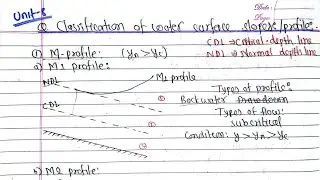 Date:
Page:
Unit-5
Q Classification of water surface slopes/profile:
CDL → Critical depth line
NDL → Normal depth line
① M-profile: (yn > yc)
a) M1 profile:
NDL
M1 profile
CDL
Types of profile:
Backwater
Types of flow:
subcritical
Condition: y > yn > yc
①
②
③
b) M2 profile: